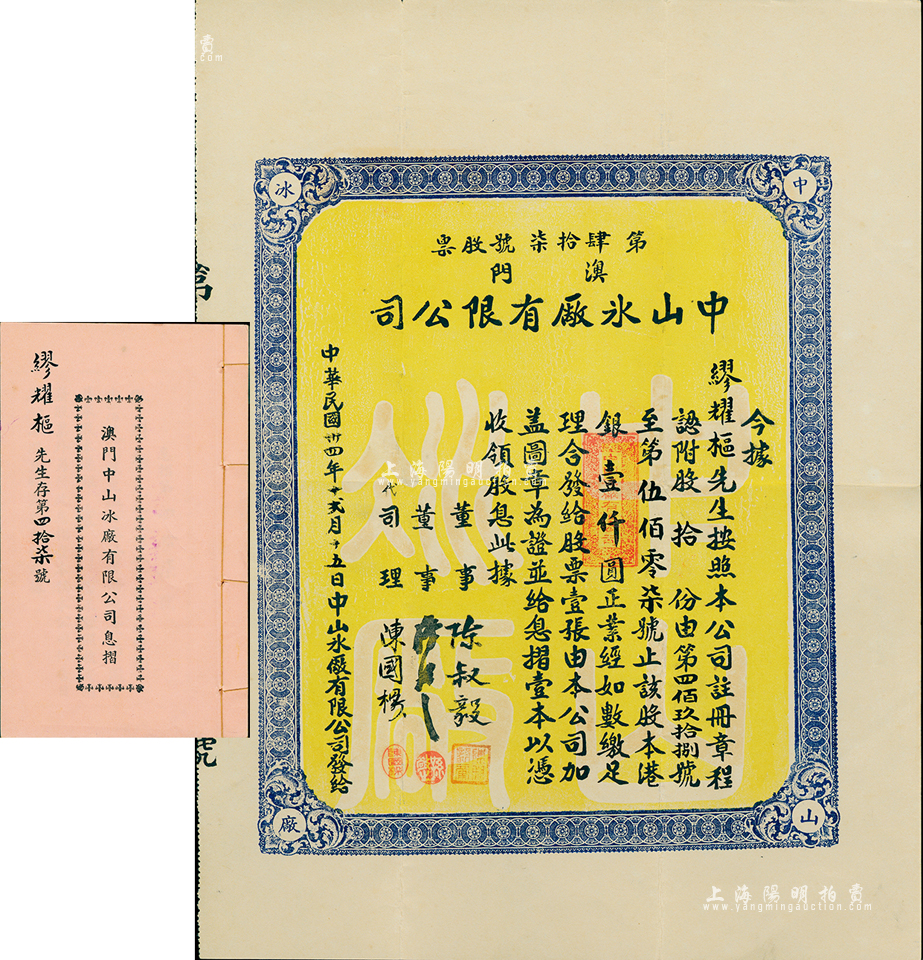 中
冰
山
廠
第肆拾柒號股票
澳門
中山氷廠有限公司
今據
繆耀樞先生按照本公司註冊章程
認附股拾份由第四佰玖拾捌號
至第伍佰零柒號止該股本港
銀壹仟圓正業經如數繳足
理合發給股票壹張由本公司加
蓋圖章為證並給息摺壹本以憑
收領股息此據
董事 陈叔毅
董事
代司理 陳國楊
中華民國卅四年十弍月十五日中山氷廠有限公司發給
第
號
澳門中山冰廠有限公司息摺
繆耀樞先生存第四拾柒號
上海陽明拍賣
www.yangmingauction.com
上海陽明拍賣
www.yangmingauction.com